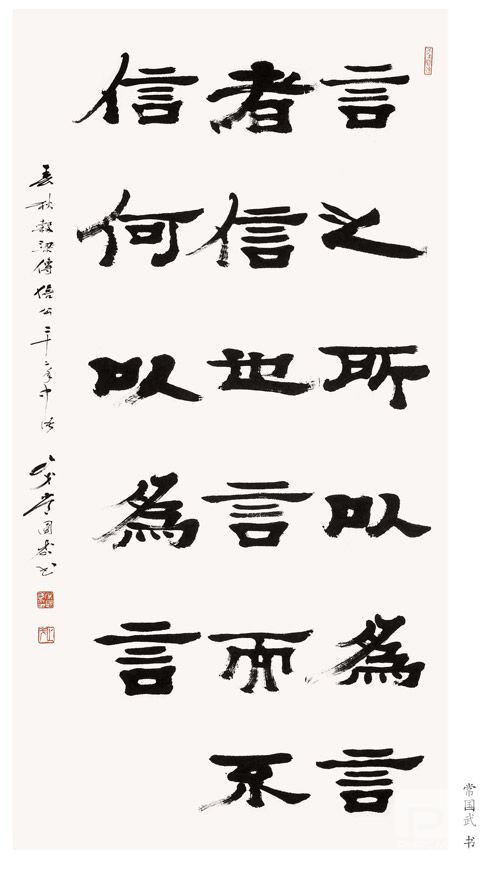 言之所以為言
者信也言而不
信何以為言
春秋穀梁傳僖公二十二年中语
常国武书
常国武 书